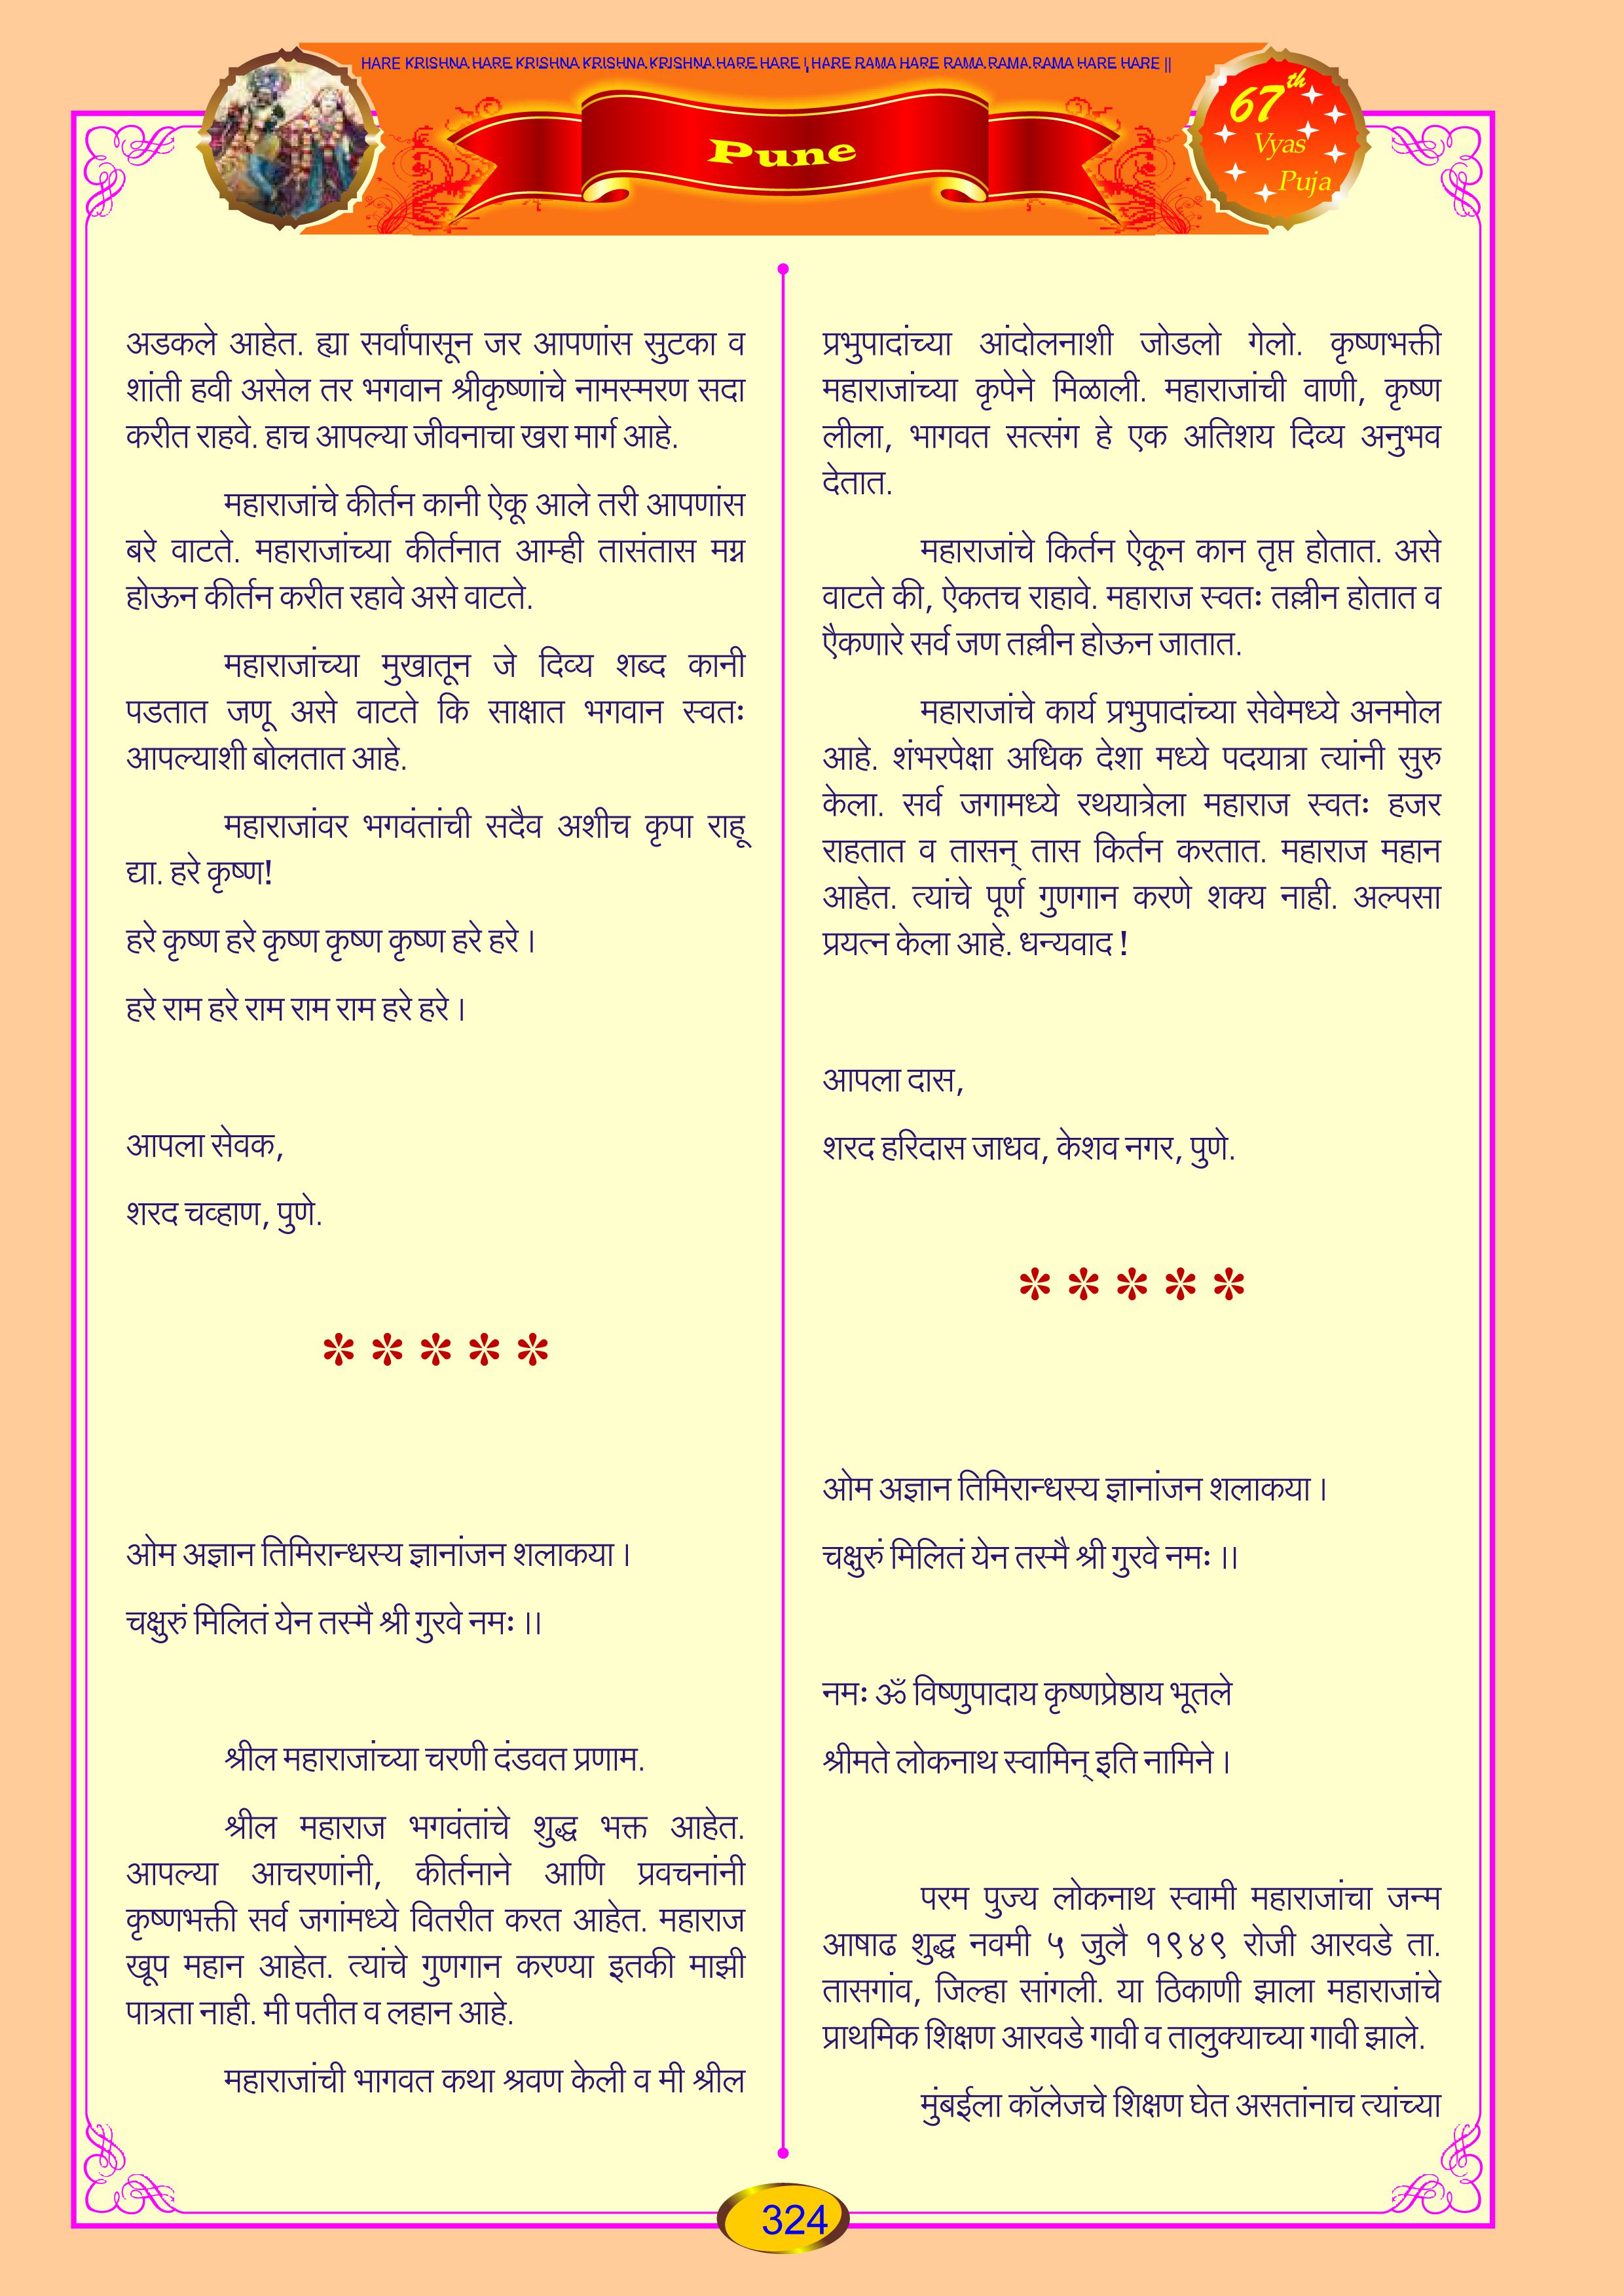 HARE KRISHNA HARE KRISHNA KRISHNA KRISHNA HARE HARE | HARE RAMA HARE RAMA RAMA RAMA HARE HARE ||
Pune
67th
Vyas
Puja
अडकले आहेत. ह्या सर्वांपासून जर आपणांस सुटका व
शांती हवी असेल तर भगवान श्रीकृष्णांचे नामस्मरण सदा
करीत राहवे. हाच आपल्या जीवनाचा खरा मार्ग आहे.
महाराजांचे कीर्तन कानी ऐकू आले तरी आपणांस
बरे वाटते. महाराजांच्या कीर्तनात आम्ही तासंतास मग्न
होऊन कीर्तन करीत रहावे असे वाटते.
महाराजांच्या मुखातून जे दिव्य शब्द कानी
पडतात जणू असे वाटते कि साक्षात भगवान स्वतः
आपल्याशी बोलतात आहे.
महाराजांवर भगवंतांची सदैव अशीच कृपा राहू
द्या. हरे कृष्ण!
हरे कृष्ण हरे कृष्ण कृष्ण कृष्ण हरे हरे ।
हरे राम हरे राम राम राम हरे हरे ।
आपला सेवक,
शरद चव्हाण, पुणे.
* * * * *
ओम अज्ञान तिमिरान्धस्य ज्ञानांजन शलाकया ।
चक्षुरुं मिलितं येन तस्मै श्री गुरवे नमः ।।
श्रील महाराजांच्या चरणी दंडवत प्रणाम.
श्रील महाराज भगवंतांचे शुद्ध भक्त आहेत.
आपल्या आचरणांनी, कीर्तनाने आणि प्रवचनांनी
कृष्णभक्ती सर्व जगांमध्ये वितरीत करत आहेत. महाराज
खूप महान आहेत. त्यांचे गुणगान करण्या इतकी माझी
पात्रता नाही. मी पतीत व लहान आहे.
महाराजांची भागवत कथा श्रवण केली व मी श्रील
प्रभुपादांच्या आंदोलनाशी जोडलो गेलो. कृष्णभक्ती
महाराजांच्या कृपेने मिळाली. महाराजांची वाणी, कृष्ण
लीला, भागवत सत्संग हे एक अतिशय दिव्य अनुभव
देतात.
महाराजांचे किर्तन ऐकून कान तृप्त होतात. असे
वाटते की, ऐकतच राहावे. महाराज स्वतः तल्लीन होतात व
एैकणारे सर्व जण तल्लीन होऊन जातात.
महाराजांचे कार्य प्रभुपादांच्या सेवेमध्ये अनमोल
आहे. शंभरपेक्षा अधिक देशा मध्ये पदयात्रा त्यांनी सुरु
केला. सर्व जगामध्ये रथयात्रेला महाराज स्वतः हजर
राहतात व तासन् तास किर्तन करतात. महाराज महान
आहेत. त्यांचे पूर्ण गुणगान करणे शक्य नाही. अल्पसा
प्रयत्न केला आहे. धन्यवाद !
आपला दास,
शरद हरिदास जाधव, केशव नगर, पुणे.
* * * * *
ओम अज्ञान तिमिरान्धस्य ज्ञानांजन शलाकया ।
चक्षुरुं मिलितं येन तस्मै श्री गुरवे नमः ।।
नमः ॐ विष्णुपादाय कृष्णप्रेष्ठाय भूतले
श्रीमते लोकनाथ स्वामिन् इति नामिने ।
परम पुज्य लोकनाथ स्वामी महाराजांचा जन्म
आषाढ शुद्ध नवमी ५ जुलै १९४९ रोजी आरवडे ता.
तासगांव, जिल्हा सांगली. या ठिकाणी झाला महाराजांचे
प्राथमिक शिक्षण आरवडे गावी व तालुक्याच्या गावी झाले.
मुंबईला कॉलेजचे शिक्षण घेत असतांनाच त्यांच्या
324